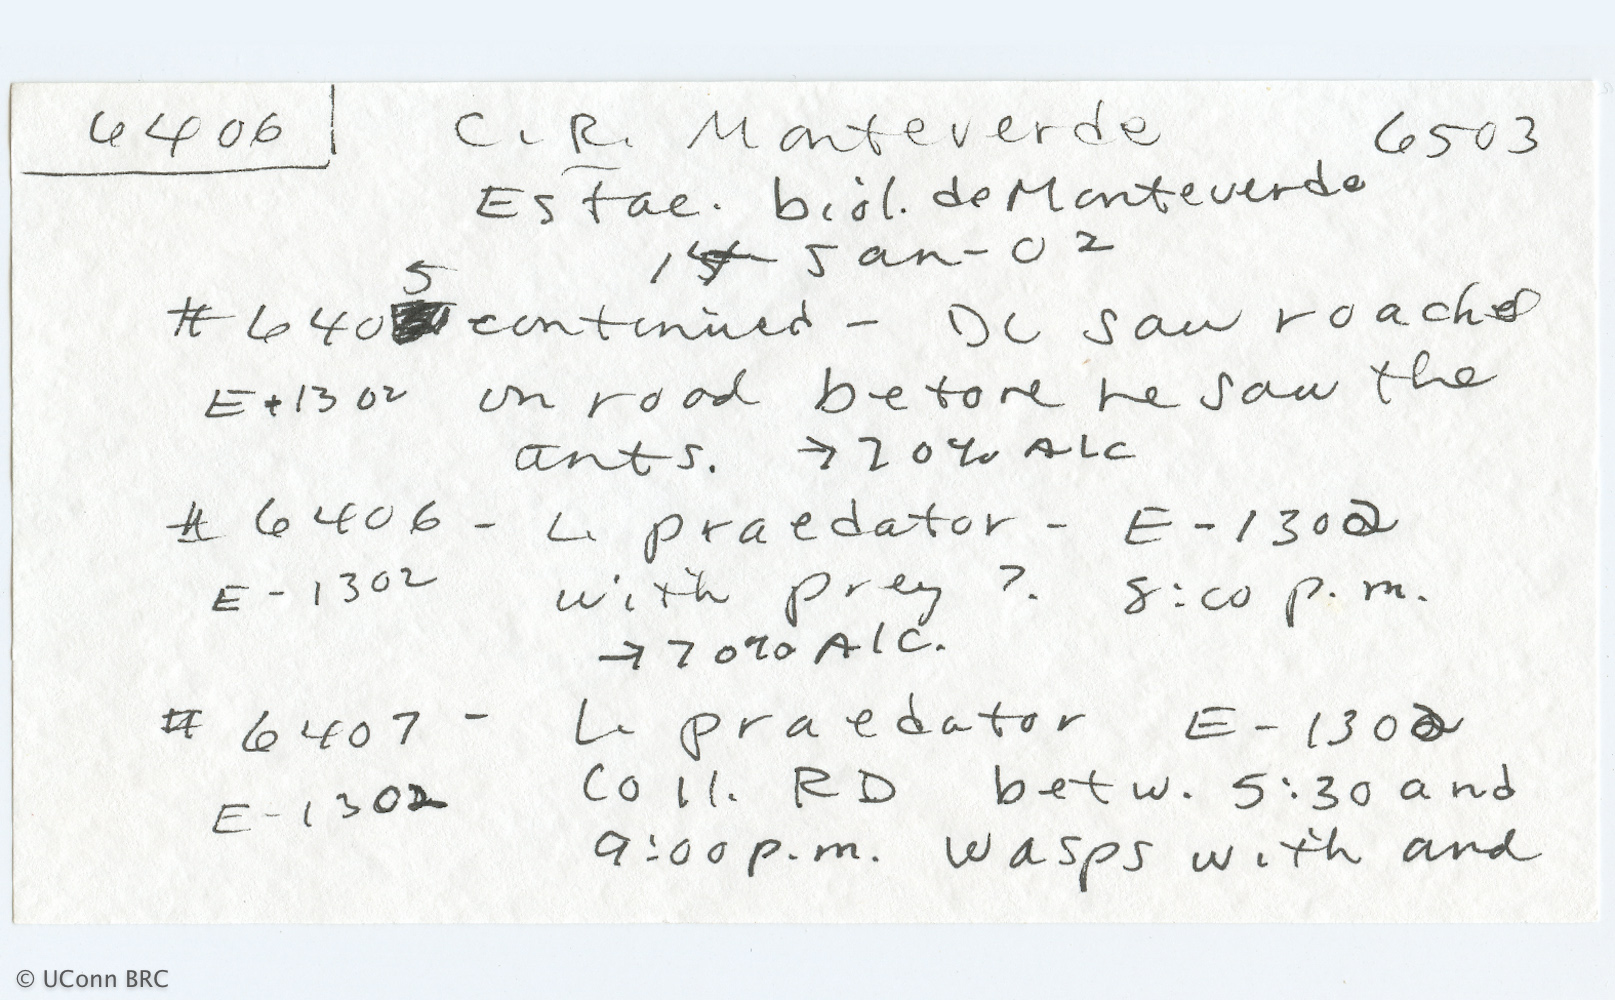 6406 C.R. Monteverde 6503
Estac. biól. de Monteverde
Jan-02
5
#640 continued - DC saw roaches
E-1302 on road before he saw the
ants. → 70% Alc
#6406 - L. praedator - E-1302
E-1302 with prey ?. 8:00 p.m.
→ 70% Alc.
#6407 - L. praedator E-1302
Coll. RD betw. 5:30 and
E-1302
9:00 p.m. Wasps with and
© UConn BRC